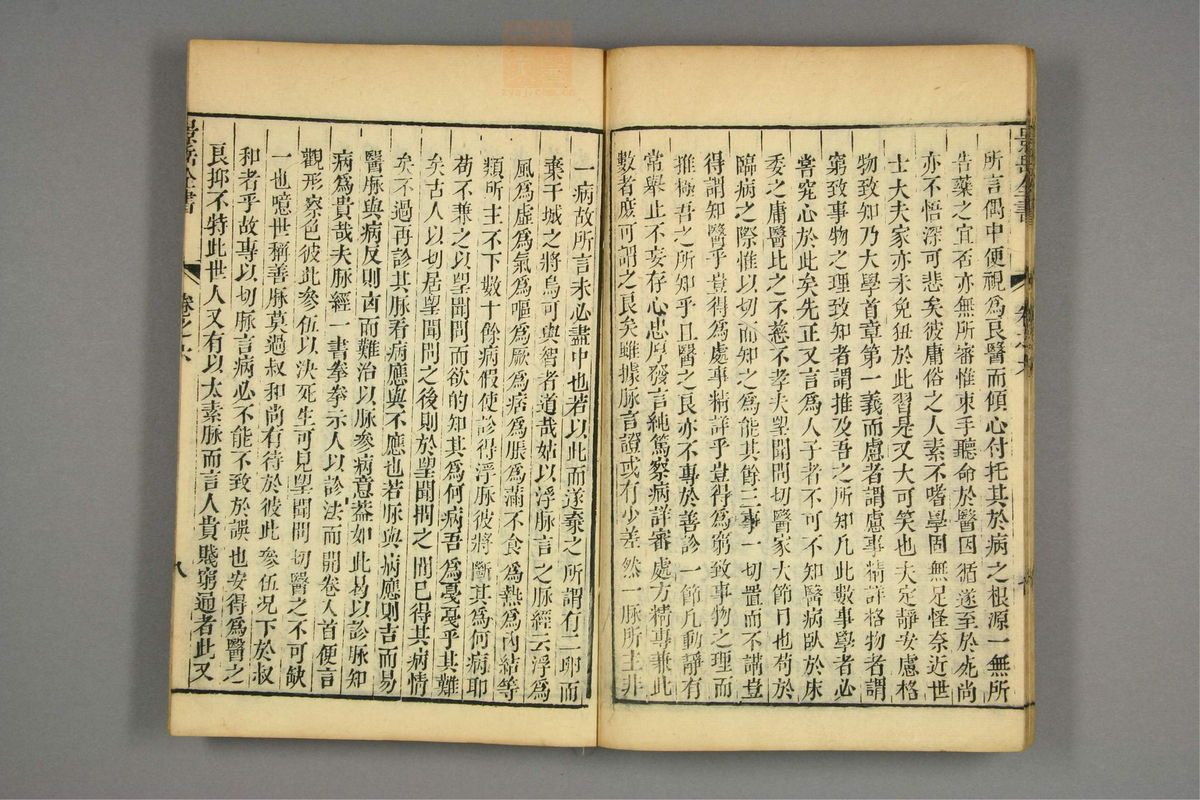 所言偶中便視為良醫而傾心付托其於病之根源一無所
告藥之宜否亦無所審惟束手聽命於醫因循遂至於死尚
亦不悟深可悲矣彼庸俗之人素不嗜學固無足怪奈近世
士大夫家亦未免狃於此習是又大可笑也夫定靜安慮格
物致知乃大學首章第一義而慮者謂慮事精詳格物者謂
窮致事物之理致知者謂推及吾之所知凡此數事學者必
嘗究心於此矣先正又言為人子者不可不知醫病臥於床
委之庸醫比之不慈不孝夫望聞問切醫家大節目也苟於
臨病之際惟以切而知之為能其餘三事一切置而不講豈
得謂知醫乎豈得為處事精詳乎豈得為窮致事物之理而
推極吾之所知乎且醫之良亦不專於善診一節凡動靜有
常舉止不妄存心忠厚發言純篤察病詳審處方精專兼此
數者庶可謂之良矣雖據脉言證或有少差然一脉所主非
一病故所言未必盡中也若以此而遂棄之所謂有二卵而
棄干城之將烏可與智者道哉姑以浮脉言之脉經云浮為
風為虛為氣為嘔為厥為痞為脹為滿不食為熱為內結等
類所主不下數十餘病假使診得浮脉彼將斷其為何病耶
苟不兼之以望聞問而欲的知其為何病吾為戞戞乎其難
矣古人以切居望聞問之後則於望聞捫之間已得其病情
矣不過再診其脉看病應與不應也若脉與病應則吉而易
醫脉與病反則凶而難治以脉參病意葢如此曷以診脉知
病為貴哉夫脉經一書拳拳示人以診法而開卷入首便言
觀形察色彼此參伍以決死生可見望聞問切醫之不可缺
一也噫世稱善脉莫過叔和尚有待於彼此參伍况下於叔
和者乎故專以切脉言病必不能不致於誤也安得為醫之
良抑不特此世人又有以太素脉而言人貴賤窮通者此又
景岳全書
卷之六
八